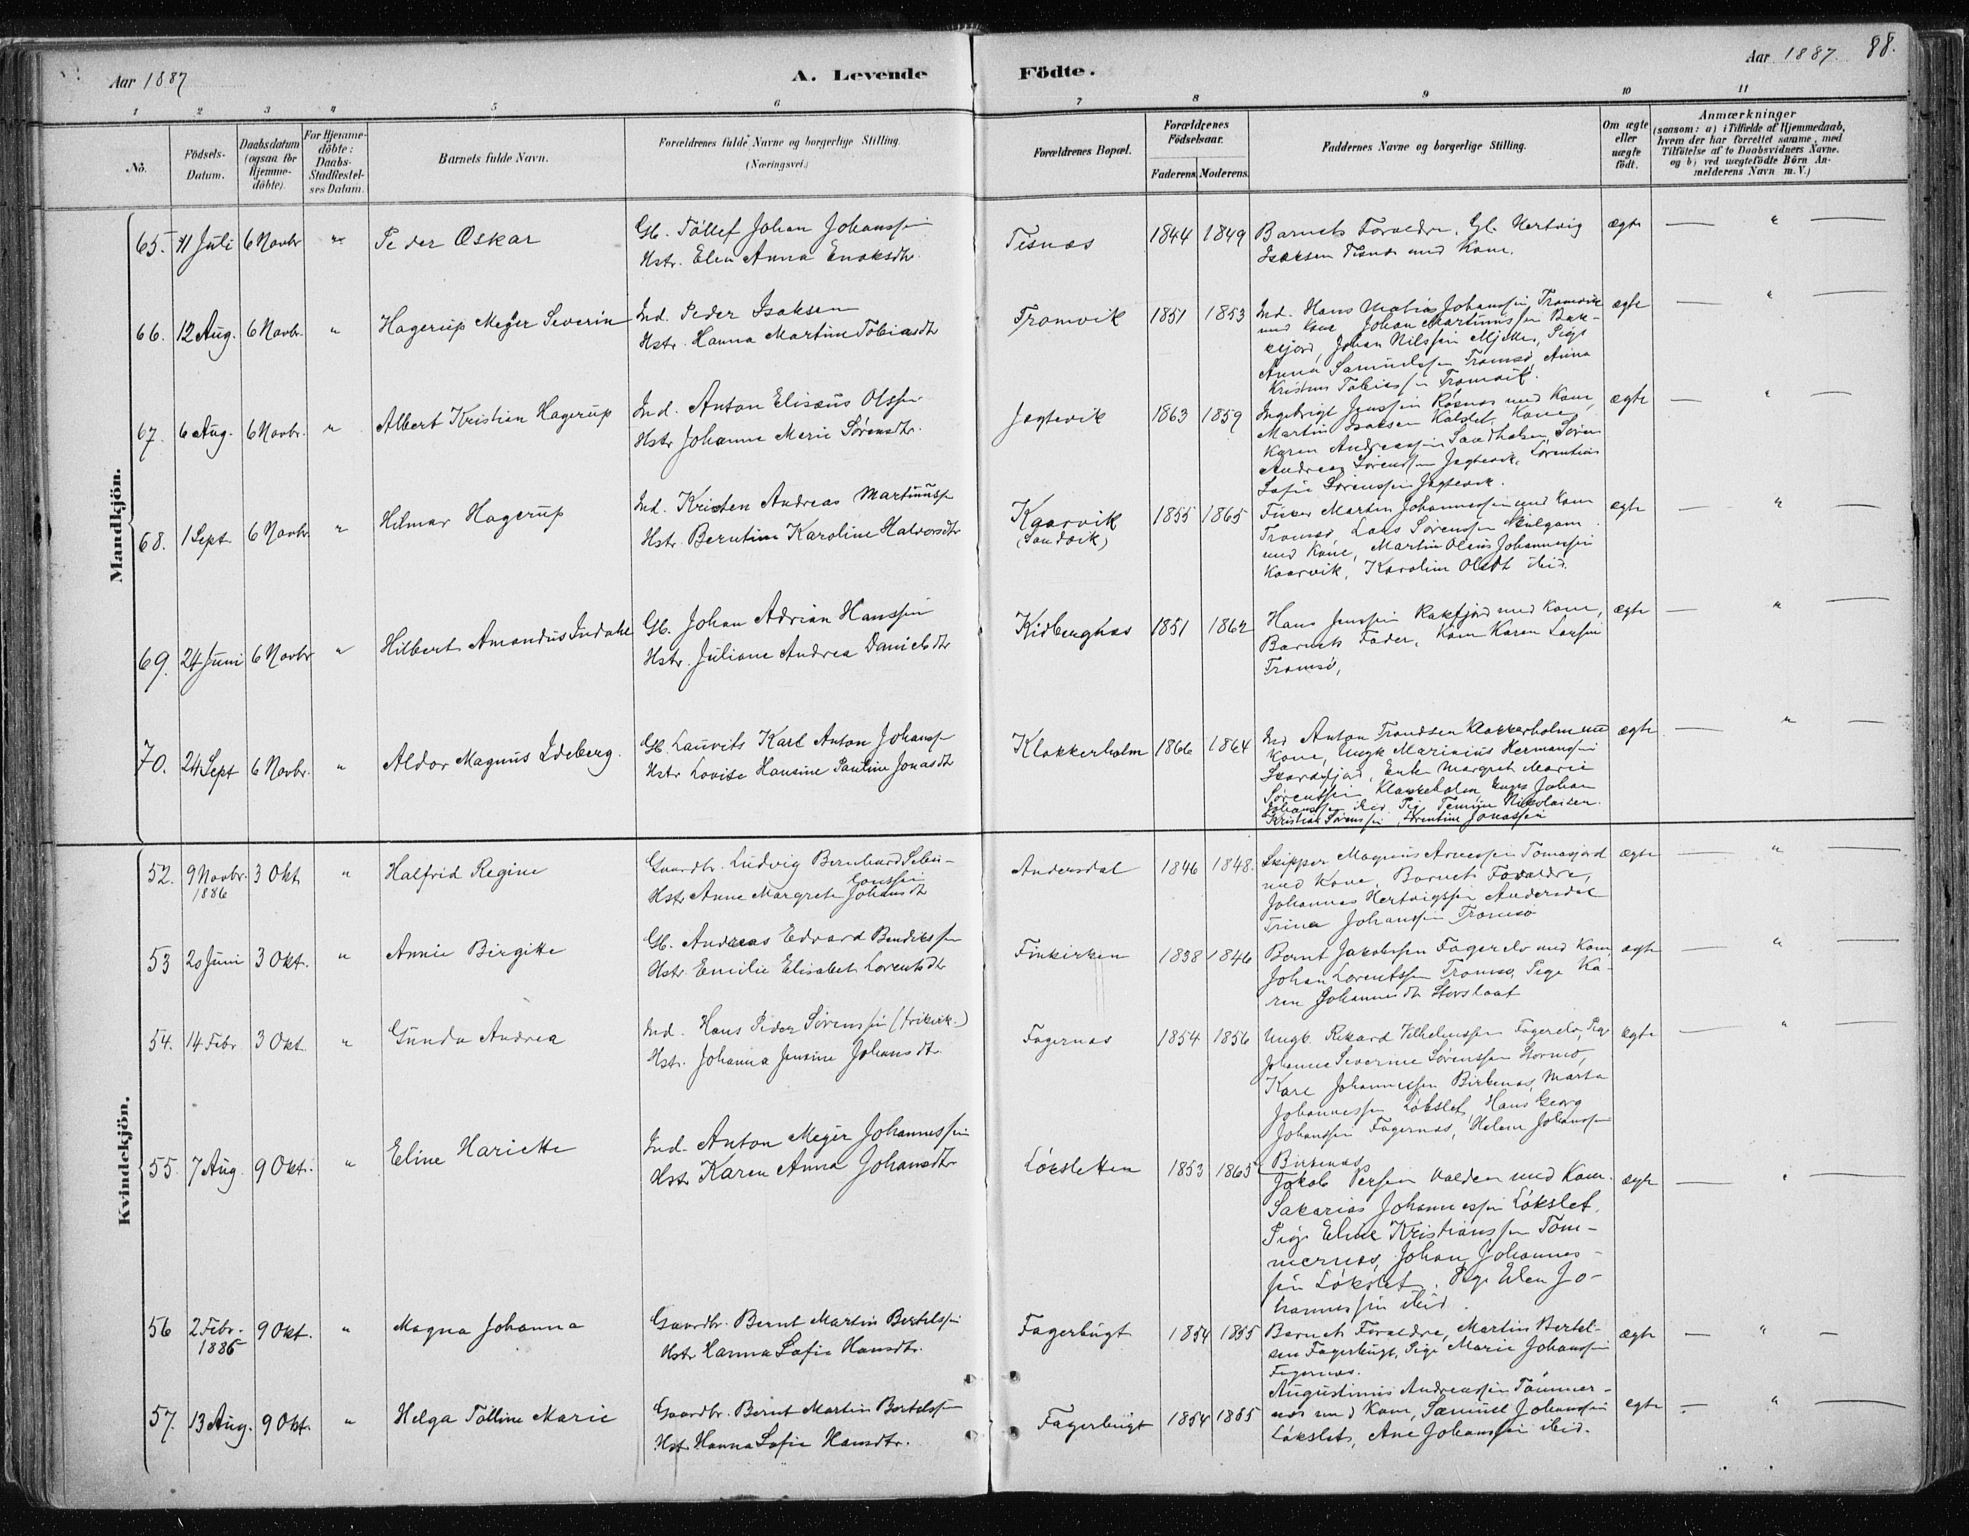 Aar 1887
A. Levende Födte.
Aar 1887. 88.
1 2 3 4 5 6 7 8 9 10 11
No.
Födsels-Datum.
Daabsdatum (ogsaa for Hjemme-döbte).
For Hjemme-döbte: Daabs-Stadfæstel-ses Datum.
Barnets fulde Navn.
Forældrenes fulde Navne og borgerlige Stilling.
(Næringsvei.)
Forældrenes Bopæl.
Forældrenes Födselsaar.
Faderens. Moderens.
Faddernes Navne og borgerlige Stilling.
Om ægte eller uægte födt.
Anmærkninger
(saasom: a) i Tilfælde af Hjemmedaab,
hvem der har forrettet samme, med
Tilföielse af to Daabsvidners Navne.
og b) ved uægtefödte Börn An-
melderens Navn m. V.)
Mandkjön.
65. 11 Juli 6 Novbr " Peder Oskar
Gb. Tollef Johan Johanssen
Hstr. Elen Anna Enoksdtr.
Tisnæs 1844 1849
Barnets Forældre, Gb. Hertvig
Isaksen Tisnæs med Kone.
ægte — " —
66. 12 Aug. 6 Novbr. " Hagerup Meyer Severin
Ind. Peder Isaksen
Hstr. Hanna Martine Tobiasdtr
Tromvik 1851 1853
Ind. Hans Mathias Johanssen Tromvik
med Kone, Johan Martinussen Bak-
kejord, Johan Nilssen Mjelle, Pige
Anna Samuelssen Tromsø, Anna
Kristine Tobiassen Tromvik.
ægte — " —
67. 6 Aug. 6 Novbr. " Albert Kristian Hagerup
Ind. Anton Elisæus Olssen
Hstr. Johanne Merie Sørensdtr.
Jegtevik 1863 1859
Ingebrigt Jenssen Røsnæs med Kone,
Martin Isaksen Kalslet, Kone
Karen Andreassen Sandhalsen, Søren
Andreas Sørenssen Jegtevik, Lorentine
Sofie Sørenssen Jegtevik.
ægte — " —
68. 1 Sept. 6 Novbr. " Hilmar Hagerup
Ind. Kristen Andreas Martinussen
Hstr. Berntine Karoline Halvorsdtr
Kaarvik
(Sandvik)
1855 1865
Fisker Martin Johannessen med Kone
Tromsø, Lars Sørenssen Skulgam
med Kone, Martin Olaus Johannessen
Kaarvik, Karoline Olsdtr ibid.
ægte — " —
69. 24 Juni 6 Novbr " Hilbert Amandus Indahl
Gb. Johan Adrian Hanssen
Hstr. Juliane Andrea Danielsdtr
Kidbergnæs 1851 1862
Hans Jenssen Rakfjord med Kone,
Barnets Fader, Kone Karen Larsen
Tromsø,
ægte — " —
70. 24 Sept 6 Novbr. " Aldor Magnus Ideberg.
Gb. Lauvits Karl Anton Johanssen
Hstr Lovise Hansine Pauline Jonasdtr
Klokkerholm 1866 1864
Ind Anton Trondsen Klokkerholm med
Kone, Ungk Marinius Hermanssen
Skardsfjord, Enke Margret Marie
Sørenssen Klokkerholm, Ungk Johan
Johanssen ibid. Pige Nikolaisen.
Kristian Sørenssen, Berntine Jonassen
ægte — " —
Kvindekjön.
52. 9 Novbr. 1886 3 Okt " Halfrid Regine
Gaardbr. Ludvig Bernhard
Hstr Anne Margrete Johansdtr
Andersdal 1846 1848.
Skipper Magnus Arnessen Tomasjord
med Kone, Barnets Forældre,
Johannes Hertvigssen Andersdal
Trina Johanssen Tromsø
ægte — " —
53 20 Juni 3 Okt. " Annie Birgitte
Gb. Andreas Edvard Bendikssen
Hstr Emilie Elisabet Lorentsdtr
Finkirken 1838 1846
Bernt Jakobssen Fagerelv med Kone,
Johan Lorentssen Tromsø, Pige Ka-
ren Johannesdtr Storslaat
ægte — " —
54. 14 Febr 3 Okt. " Gunda Andrea
Ind. Hans Peder Sørenssen (frikirk.)
Hstr. Johanna Jensine Johansdtr.
Fagernæs 1854 1856
Ungk. Rikard Vilhelmssen Fagerelv, Pige
Johanne Severine Sørenssen Stormo,
Karl Johannessen Birkenæs, Marta
Johannessen Løkslet, Hans Georg
Johanssen Fagernæs, Helene Johanssen
Birkenæs
ægte — " —
55. 7 Aug. 9 Okt. " Eline Hariette
Ind. Anton Meyer Johannessen
Hstr Karen Anna Johansdtr
Løksletten 1853 1865
Jakob Persen Valden med Kone.
Sakarias Johannessen Løkslet.
Pige Eline Kristianssen Tøm-
mernæs, Johan Johannes-
sen Løkslet. Pige Elen Jo-
hannessen ibid.
ægte — " —
56 2 Febr. 1886 9 Okt. " Magna Johanna
Gaardbr. Bernt Martin Bertelssen
Hstr Hanna Sofie Hansdtr.
Fagerbugt 1854 1855
Barnets Forældre, Martin Bertel-
sen Fagerbugt, Pige Marie Johanssen
Fagernæs.
ægte — " —
57. 13 Aug. 9 Okt. " Helga Tolline Marie
Gaardbr. Bernt Martin Bertelssen
Hstr Hanna Sofie Hansdtr.
Fagerbugt 1854 1855
Augustinus Andreassen Tømmer-
næs med Kone, Samuel Johanssen
Løkslet, Ane Johanssen ibid.
egte — " —